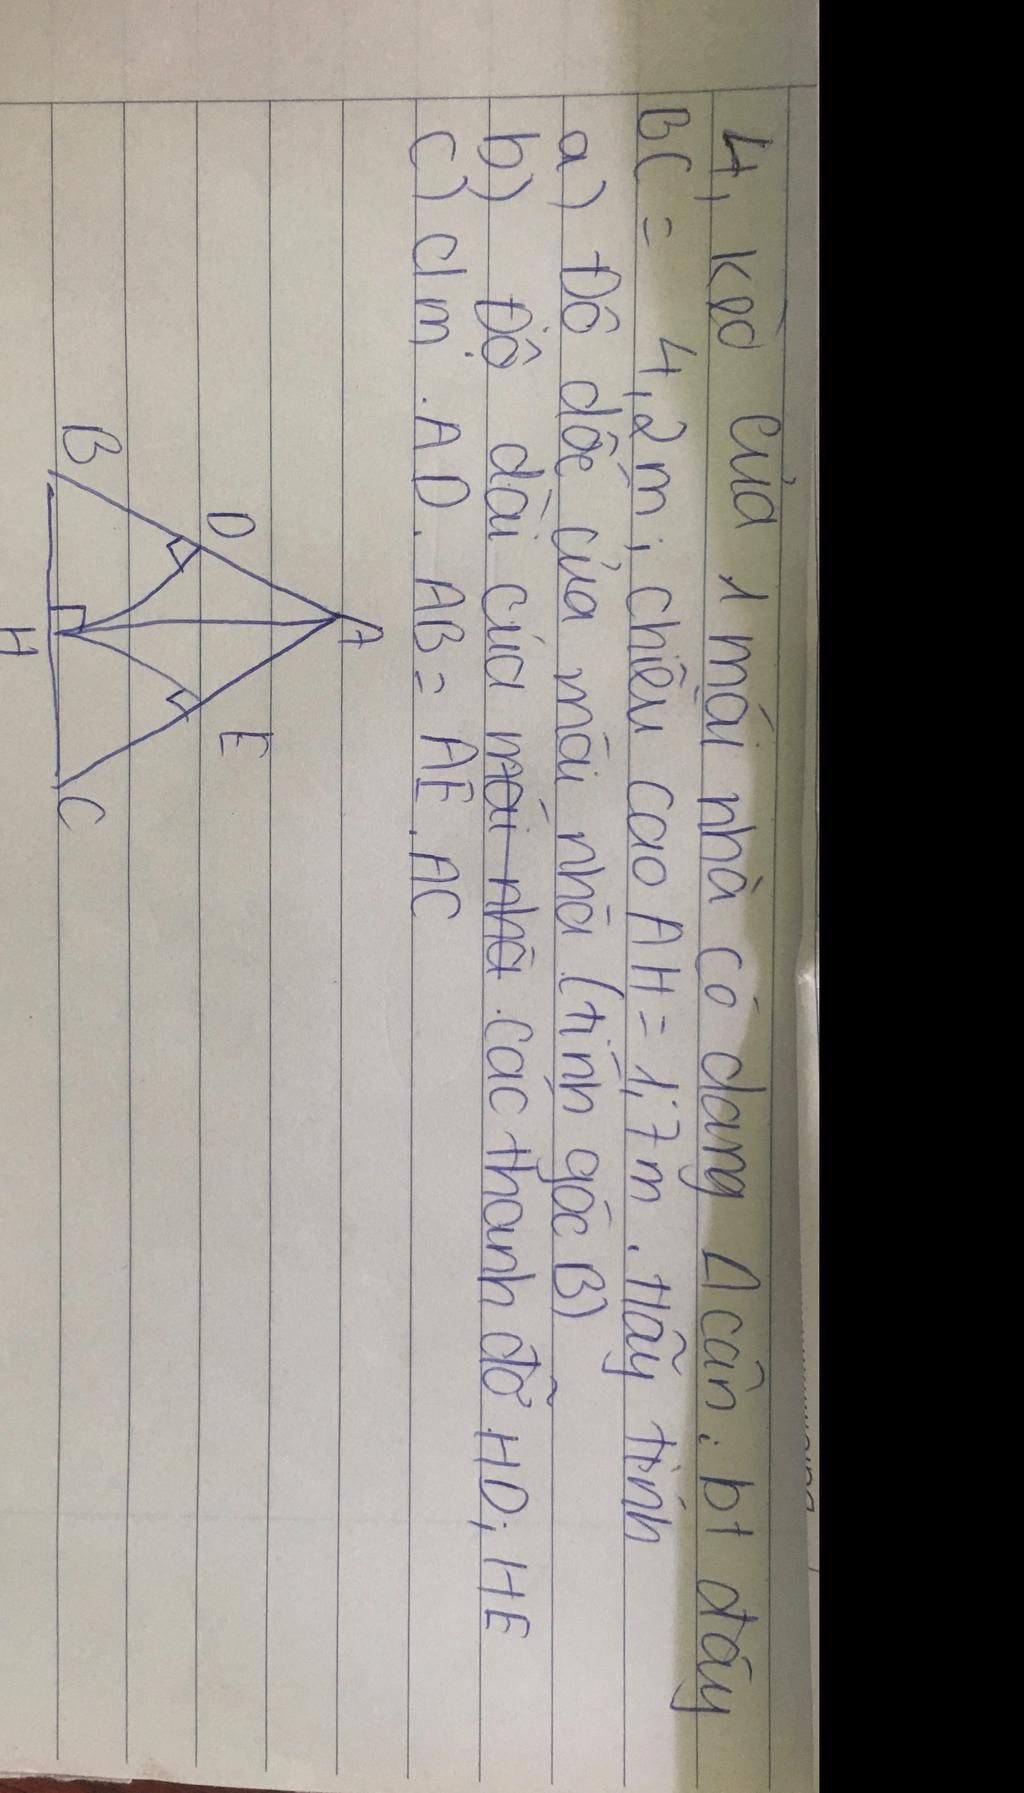 4, kèo của 1 mái nhà có dạng Δ cân. bt đáy
BC = 4,2m, chiều cao AH = 1,7m. Hãy tính
a) Độ dốc của mái nhà (tính góc B)
b) Độ dài của mái nhà các thanh đỡ HD; HE
c) cm. AD. AB = AE. AC
A
D
E
B
C
H